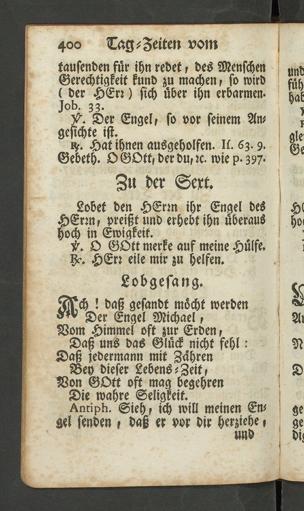 400 Tag-Zeiten vom
tausenden für ihn redet, des Menschen
Gerechtigkeit kund zu machen, so wird
(der HErr) sich über ihn erbarmen.
Job. 33.
℣. Der Engel, so vor seinem An-
gesichte ist.
℟. Hat ihnen ausgeholfen. Is. 63. 9.
Gebeth. O GOtt, der du, ꝛc. wie p. 397.
Zu der Sext.
Lobet den HErrn ihr Engel des
HErrn, preißt und erhebt ihn überaus
hoch in Ewigkeit.
℣. O GOtt merke auf meine Hülfe.
℟. HErr eile mir zu helfen.
Lobgesang.
Ach! daß gesandt möcht werden
Der Engel Michael,
Vom Himmel oft zur Erden,
Daß uns das Glück nicht fehl:
Daß jedermann mit Zähren
Bey dieser Lebens-Zeit,
Von GOtt oft mag begehren
Die wahre Seligkeit.
Antiph. Sieh, ich will meinen En-
gel senden, daß er vor dir herziehe,
und